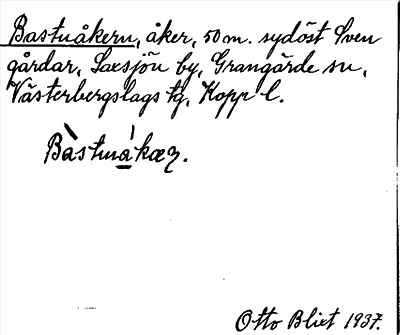 Bastuåkern, åker, 50 m. sydöst Sven
gårdar, Saxsjön by, Grangärde sn,
Västerbergslags tg, Kopp l.
Bàstuá̱kæȝ.
Otto Blixt 1937.